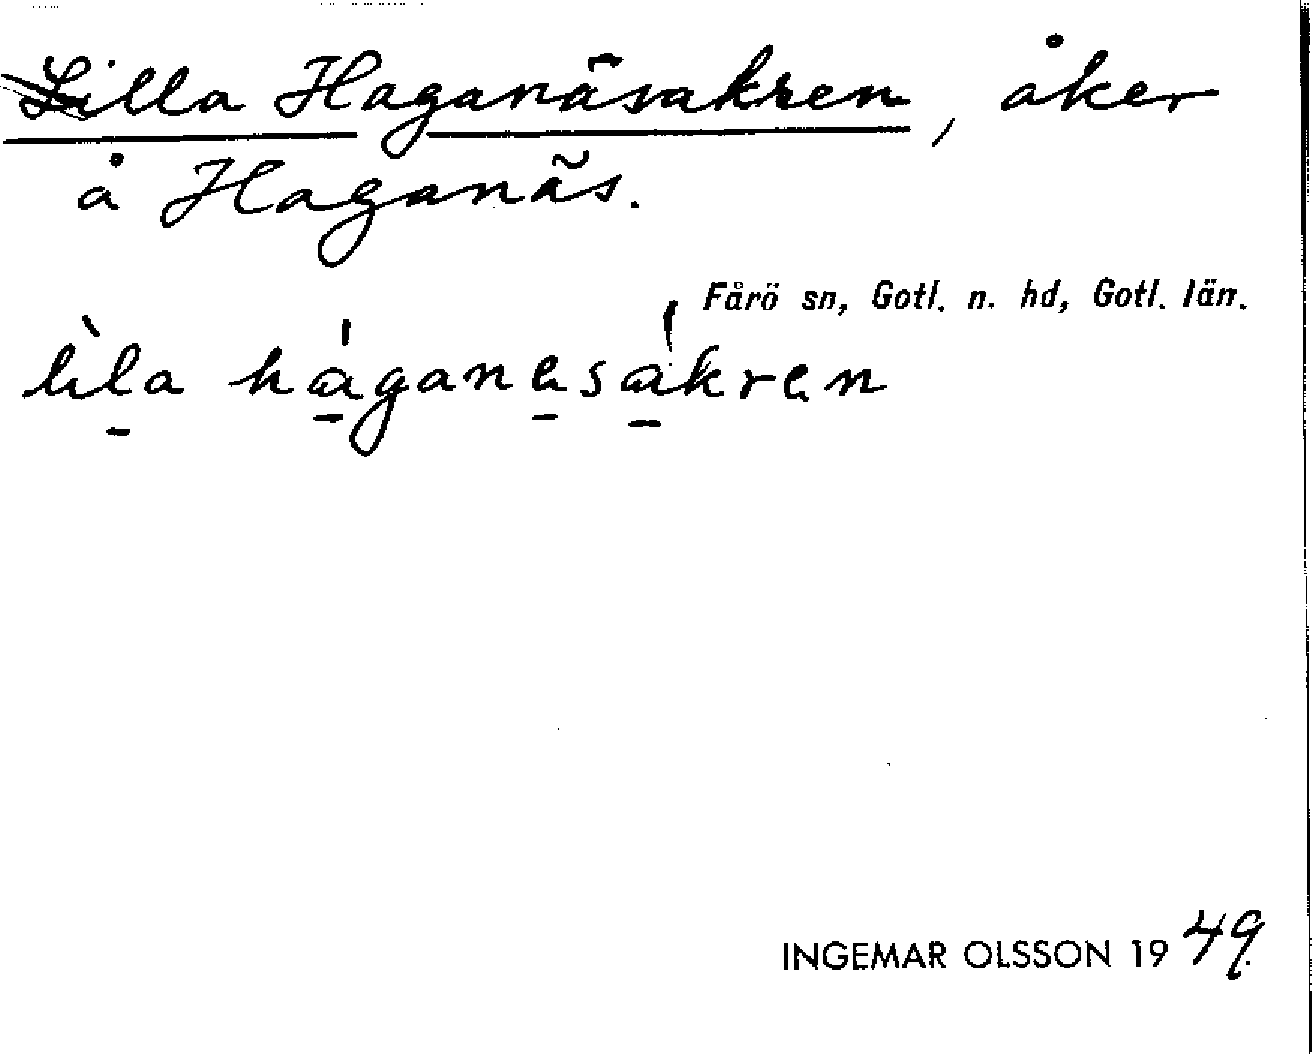 Lilla Haganäsakren, åker
å Haganäs.
Fårö sn, Gotl. n. hd, Gotl. län.
lìla háganesákren
INGEMAR OLSSON 1949